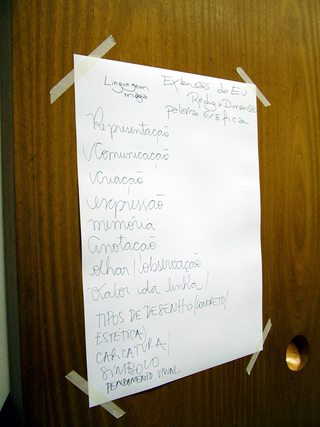 Linguagem
mágica
Extensão do EU
Redução Dimensão
palavra gráfica
Representação
Comunicação
Criação
expressão
memória
Anotação
olhar/observação
Valor da linha/
TIPOS DE DESENHO/CONCRETO/
ESTÉTICA/
CARICATURA/
SÍMBOLO
PENSAMENTO VISUAL